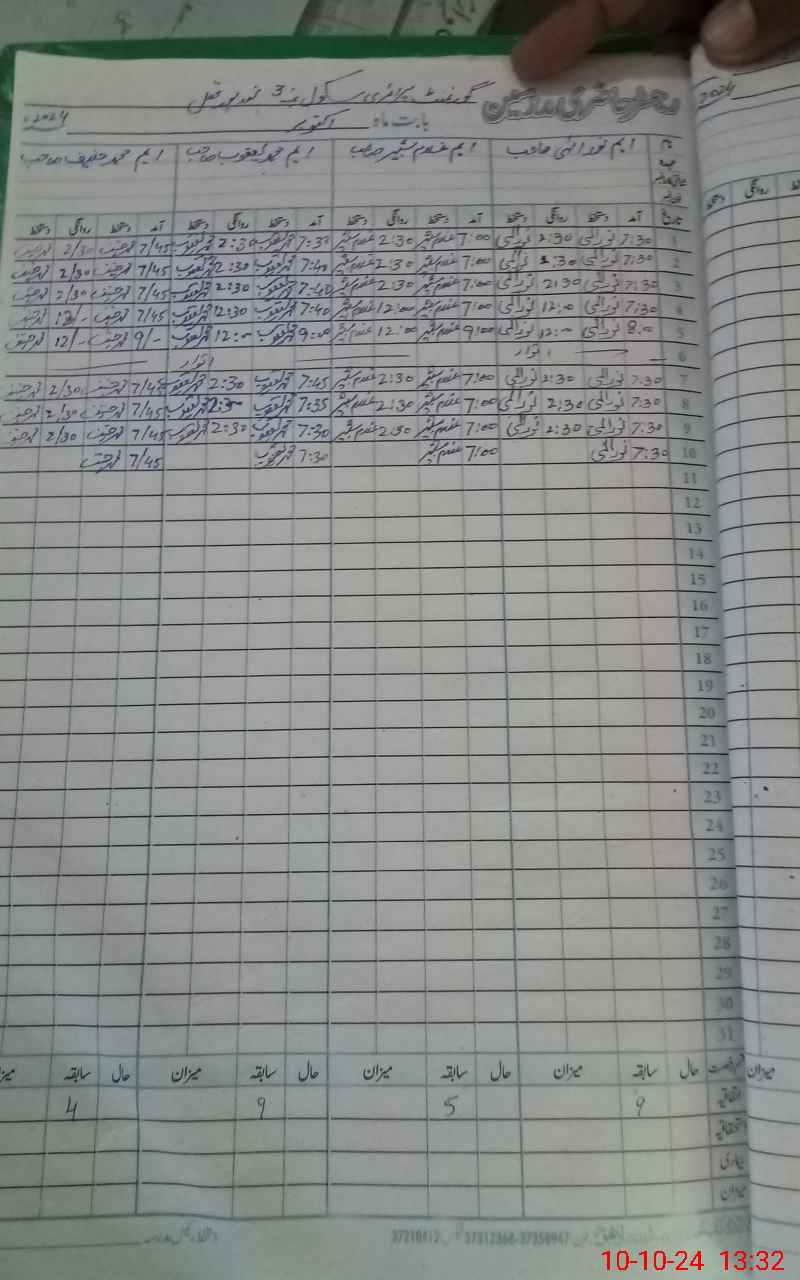 رجسٹر حاضری مدرسین گورنمنٹ پرائمری سکول نمبر 3
2024
بابت ماہ اکتوبر 2024ء
نام ایم نور الہی صاحب ایم غلام شبیر صاحب ایم محمد یعقوب صاحب ایم محمد حنیف صاحب
تاریخ آمد دستخط روانگی دستخط آمد دستخط روانگی دستخط آمد دستخط روانگی دستخط آمد دستخط روانگی دستخط
روانگی دستخط
1 7:30 نور الہی 2:30 نور الہی 7:00 غلام شبیر 2:30 غلام شبیر 7:30 محمد یعقوب 2:30 محمد یعقوب 7/45 محمد حنیف 2/30 محمد حنیف
2 7:30 نور الہی 2:30 نور الہی 7:00 غلام شبیر 2:30 غلام شبیر 7:40 محمد یعقوب 2:30 محمد یعقوب 7/45 محمد حنیف 2/30 محمد حنیف
3 7:30 نور الہی 2:30 نور الہی 7:00 غلام شبیر 2:30 غلام شبیر 7:40 محمد یعقوب 2:30 محمد یعقوب 7/45 محمد حنیف 2/30 محمد حنیف
4 7:30 نور الہی 12:00 نور الہی 7:00 غلام شبیر 12:00 غلام شبیر 7:40 محمد یعقوب 12:30 محمد یعقوب 7/45 محمد حنیف 12/- محمد حنیف
5 8:00 نور الہی 12:00 نور الہی 9:00 غلام شبیر 12:00 غلام شبیر 9:00 محمد یعقوب 12:00 محمد یعقوب 9/- محمد حنیف 12/- محمد حنیف
6 اتوار اتوار
7 7:30 نور الہی 2:30 نور الہی 7:00 غلام شبیر 2:30 غلام شبیر 7:45 محمد یعقوب 2:30 محمد یعقوب 7/45 محمد حنیف 2/30 محمد حنیف
8 7:30 نور الہی 2:30 نور الہی 7:00 غلام شبیر 2:30 غلام شبیر 7:35 محمد یعقوب 2:30 محمد یعقوب 7/45 محمد حنیف 2/30 محمد حنیف
9 7:30 نور الہی 2:30 نور الہی 7:00 غلام شبیر 2:30 غلام شبیر 7:30 محمد یعقوب 2:30 محمد یعقوب 7/45 محمد حنیف 2/30 محمد حنیف
10 7:30 نور الہی 7:00 غلام شبیر 7:30 محمد یعقوب 7/45 محمد حنیف
11
12
13
14
15
16
17
18
19
20
21
22
23
24
25
26
27
28
29
30
31
میزان قسم رخصت حال سابقہ میزان حال سابقہ میزان حال سابقہ میزان حال سابقہ میزان
اتفاقیہ 9 5 9 4
استحقاقیہ
بیماری
میزان
10-10-24 13:32